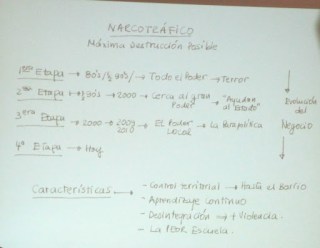 NARCOTRÁFICO
Máxima Destrucción Posible
1era Etapa → 80's/90's/ → Todo el Poder → Terror
2da Etapa → 90's → 2000 → Cerca al gran Poder → "Ayudan al Estado"
3era Etapa → 2000 → 2009 2010 → El Poder Local → La Parapolítica
4ta Etapa → Hoy
Evolución del Negocio
Características → - Control territorial → Hasta el Barrio
- Aprendizaje continuo
- Desintegración → + Violencia.
- La Peor Escuela.